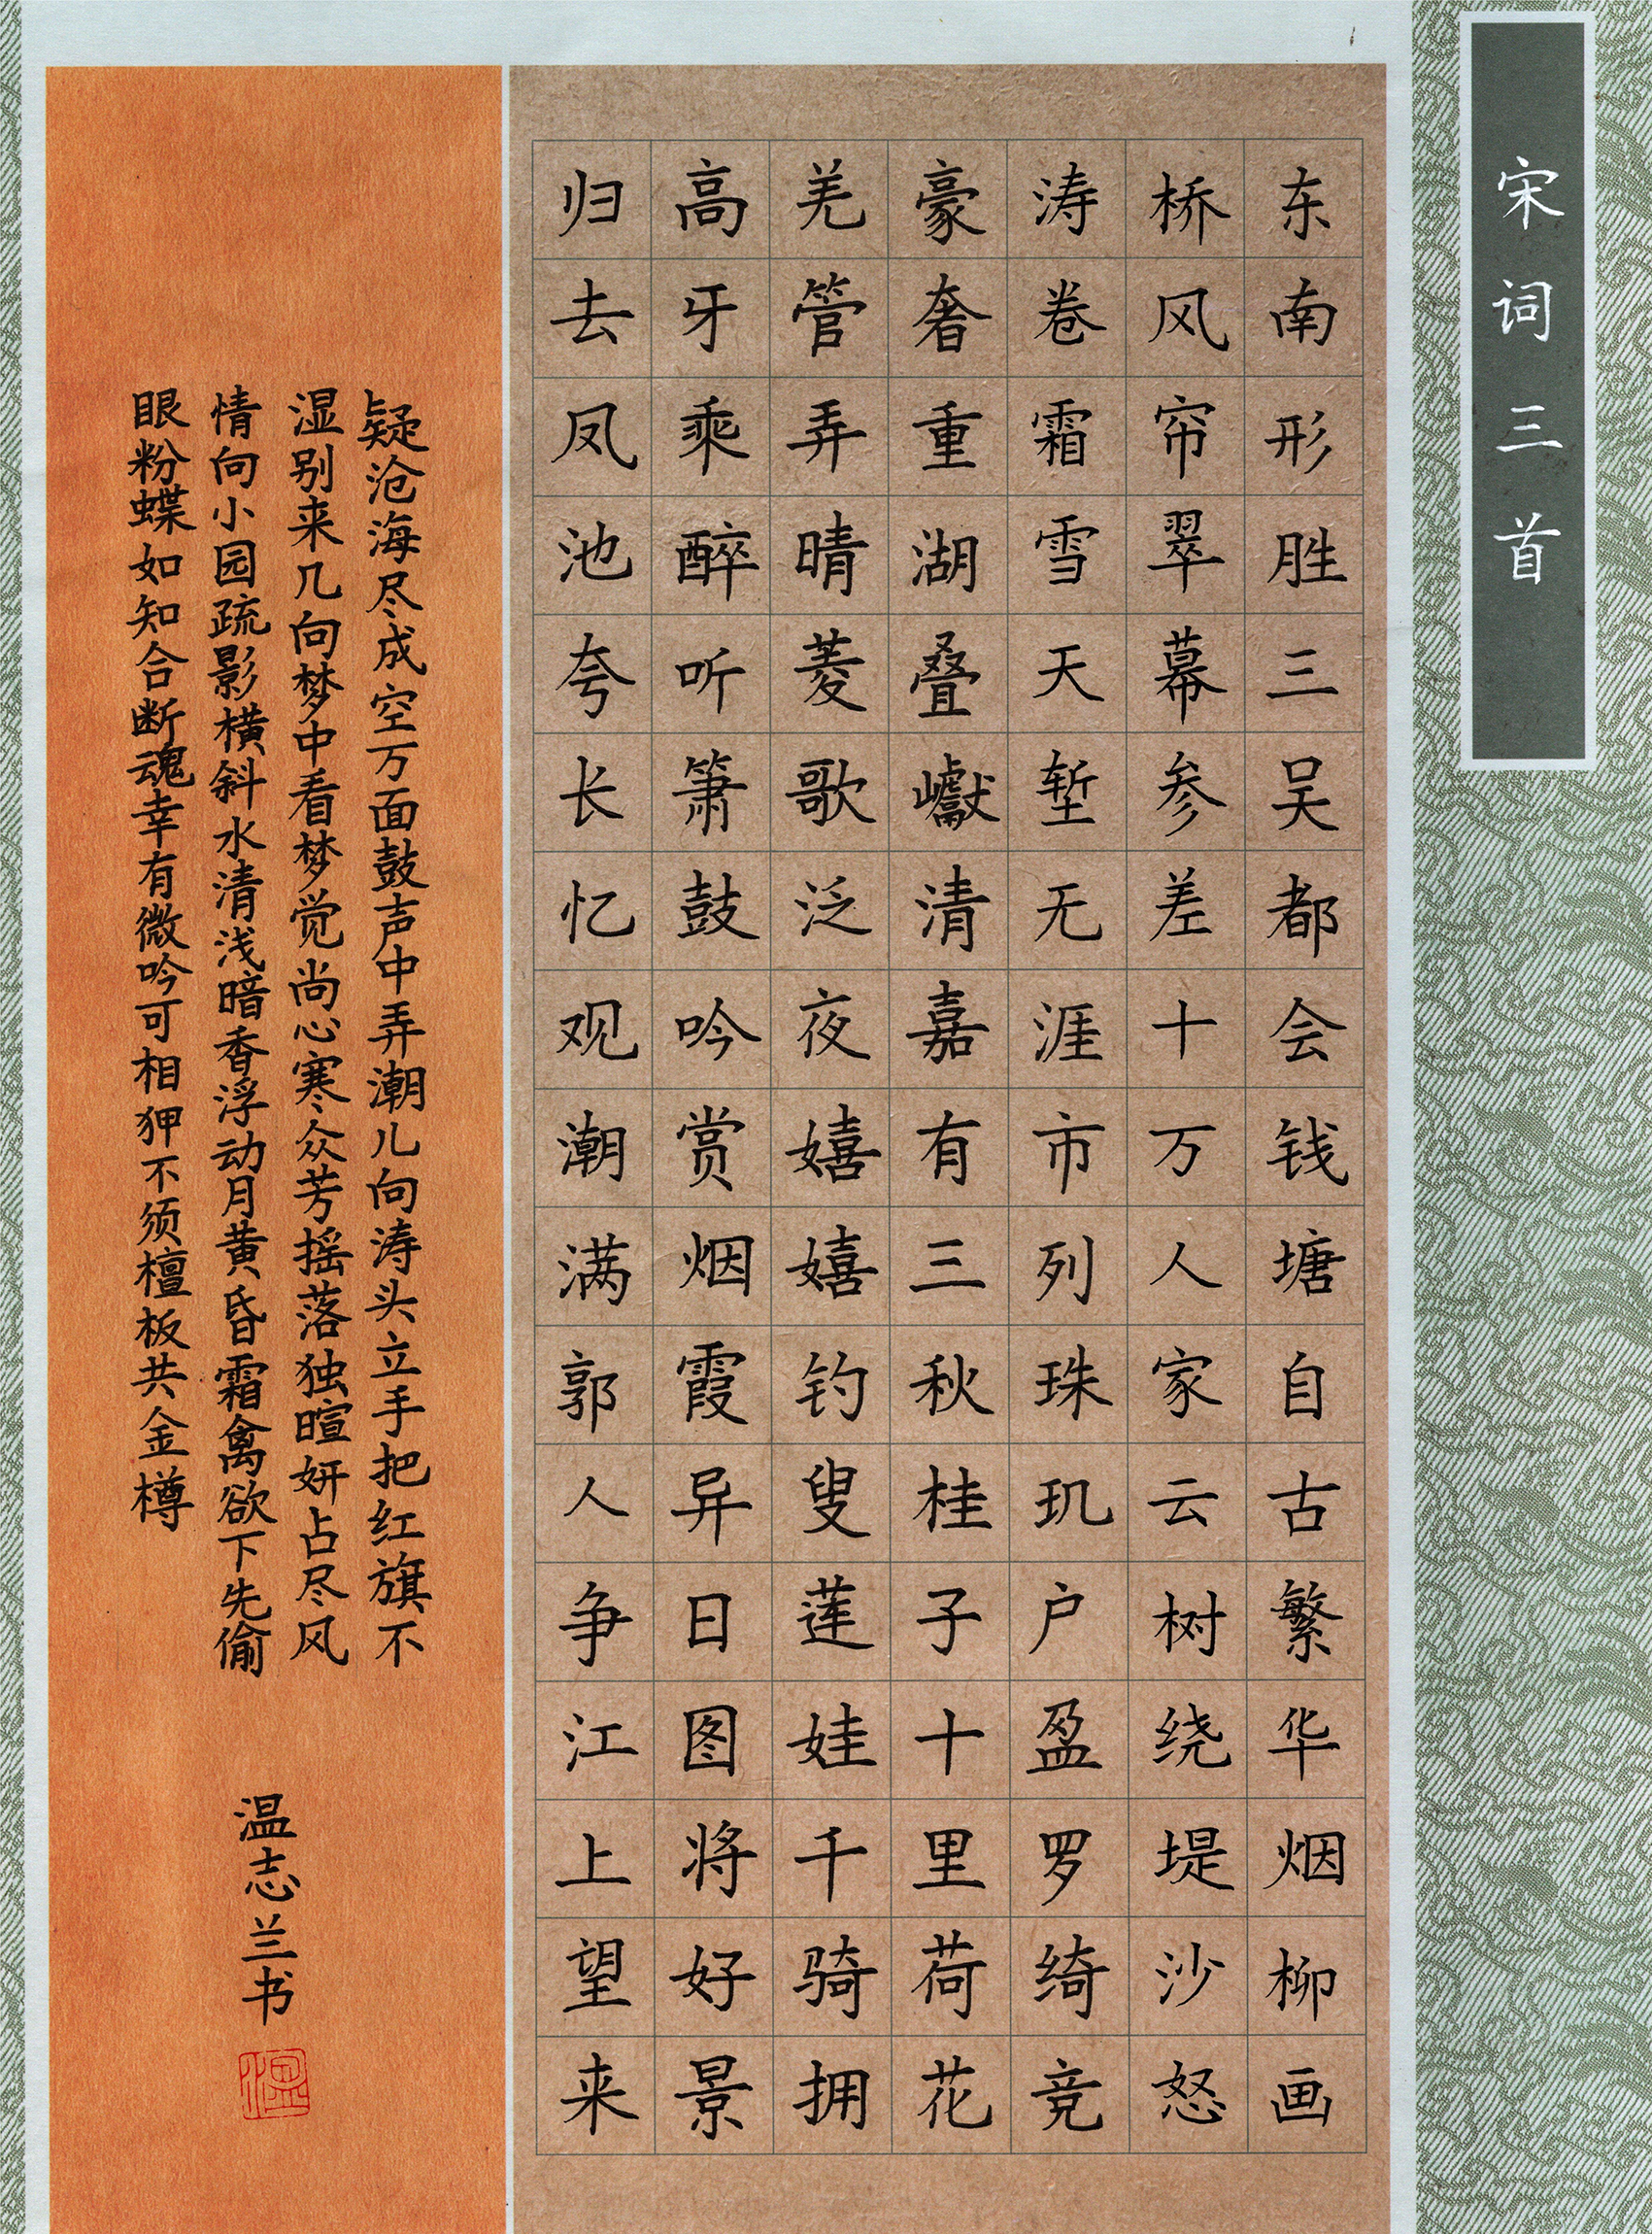 宋词三首
东南形胜三吴都会钱塘自古繁华烟柳画
桥风帘翠幕参差十万人家云树绕堤沙怒
涛卷霜雪天堑无涯市列珠玑户盈罗绮竞
豪奢重湖叠巘清嘉有三秋桂子十里荷花
羌管弄晴菱歌泛夜嬉嬉钓叟莲娃千骑拥
高牙乘醉听箫鼓吟赏烟霞异日图将好景
归去凤池夸长忆观潮满郭人争江上望来
疑沧海尽成空万面鼓声中弄潮儿向涛头立手把红旗不
湿别来几向梦中看梦觉尚心寒众芳摇落独暄妍占尽风
情向小园疏影横斜水清浅暗香浮动月黄昏霜禽欲下先偷
眼粉蝶如知合断魂幸有微吟可相狎不须檀板共金樽
温志兰书
温